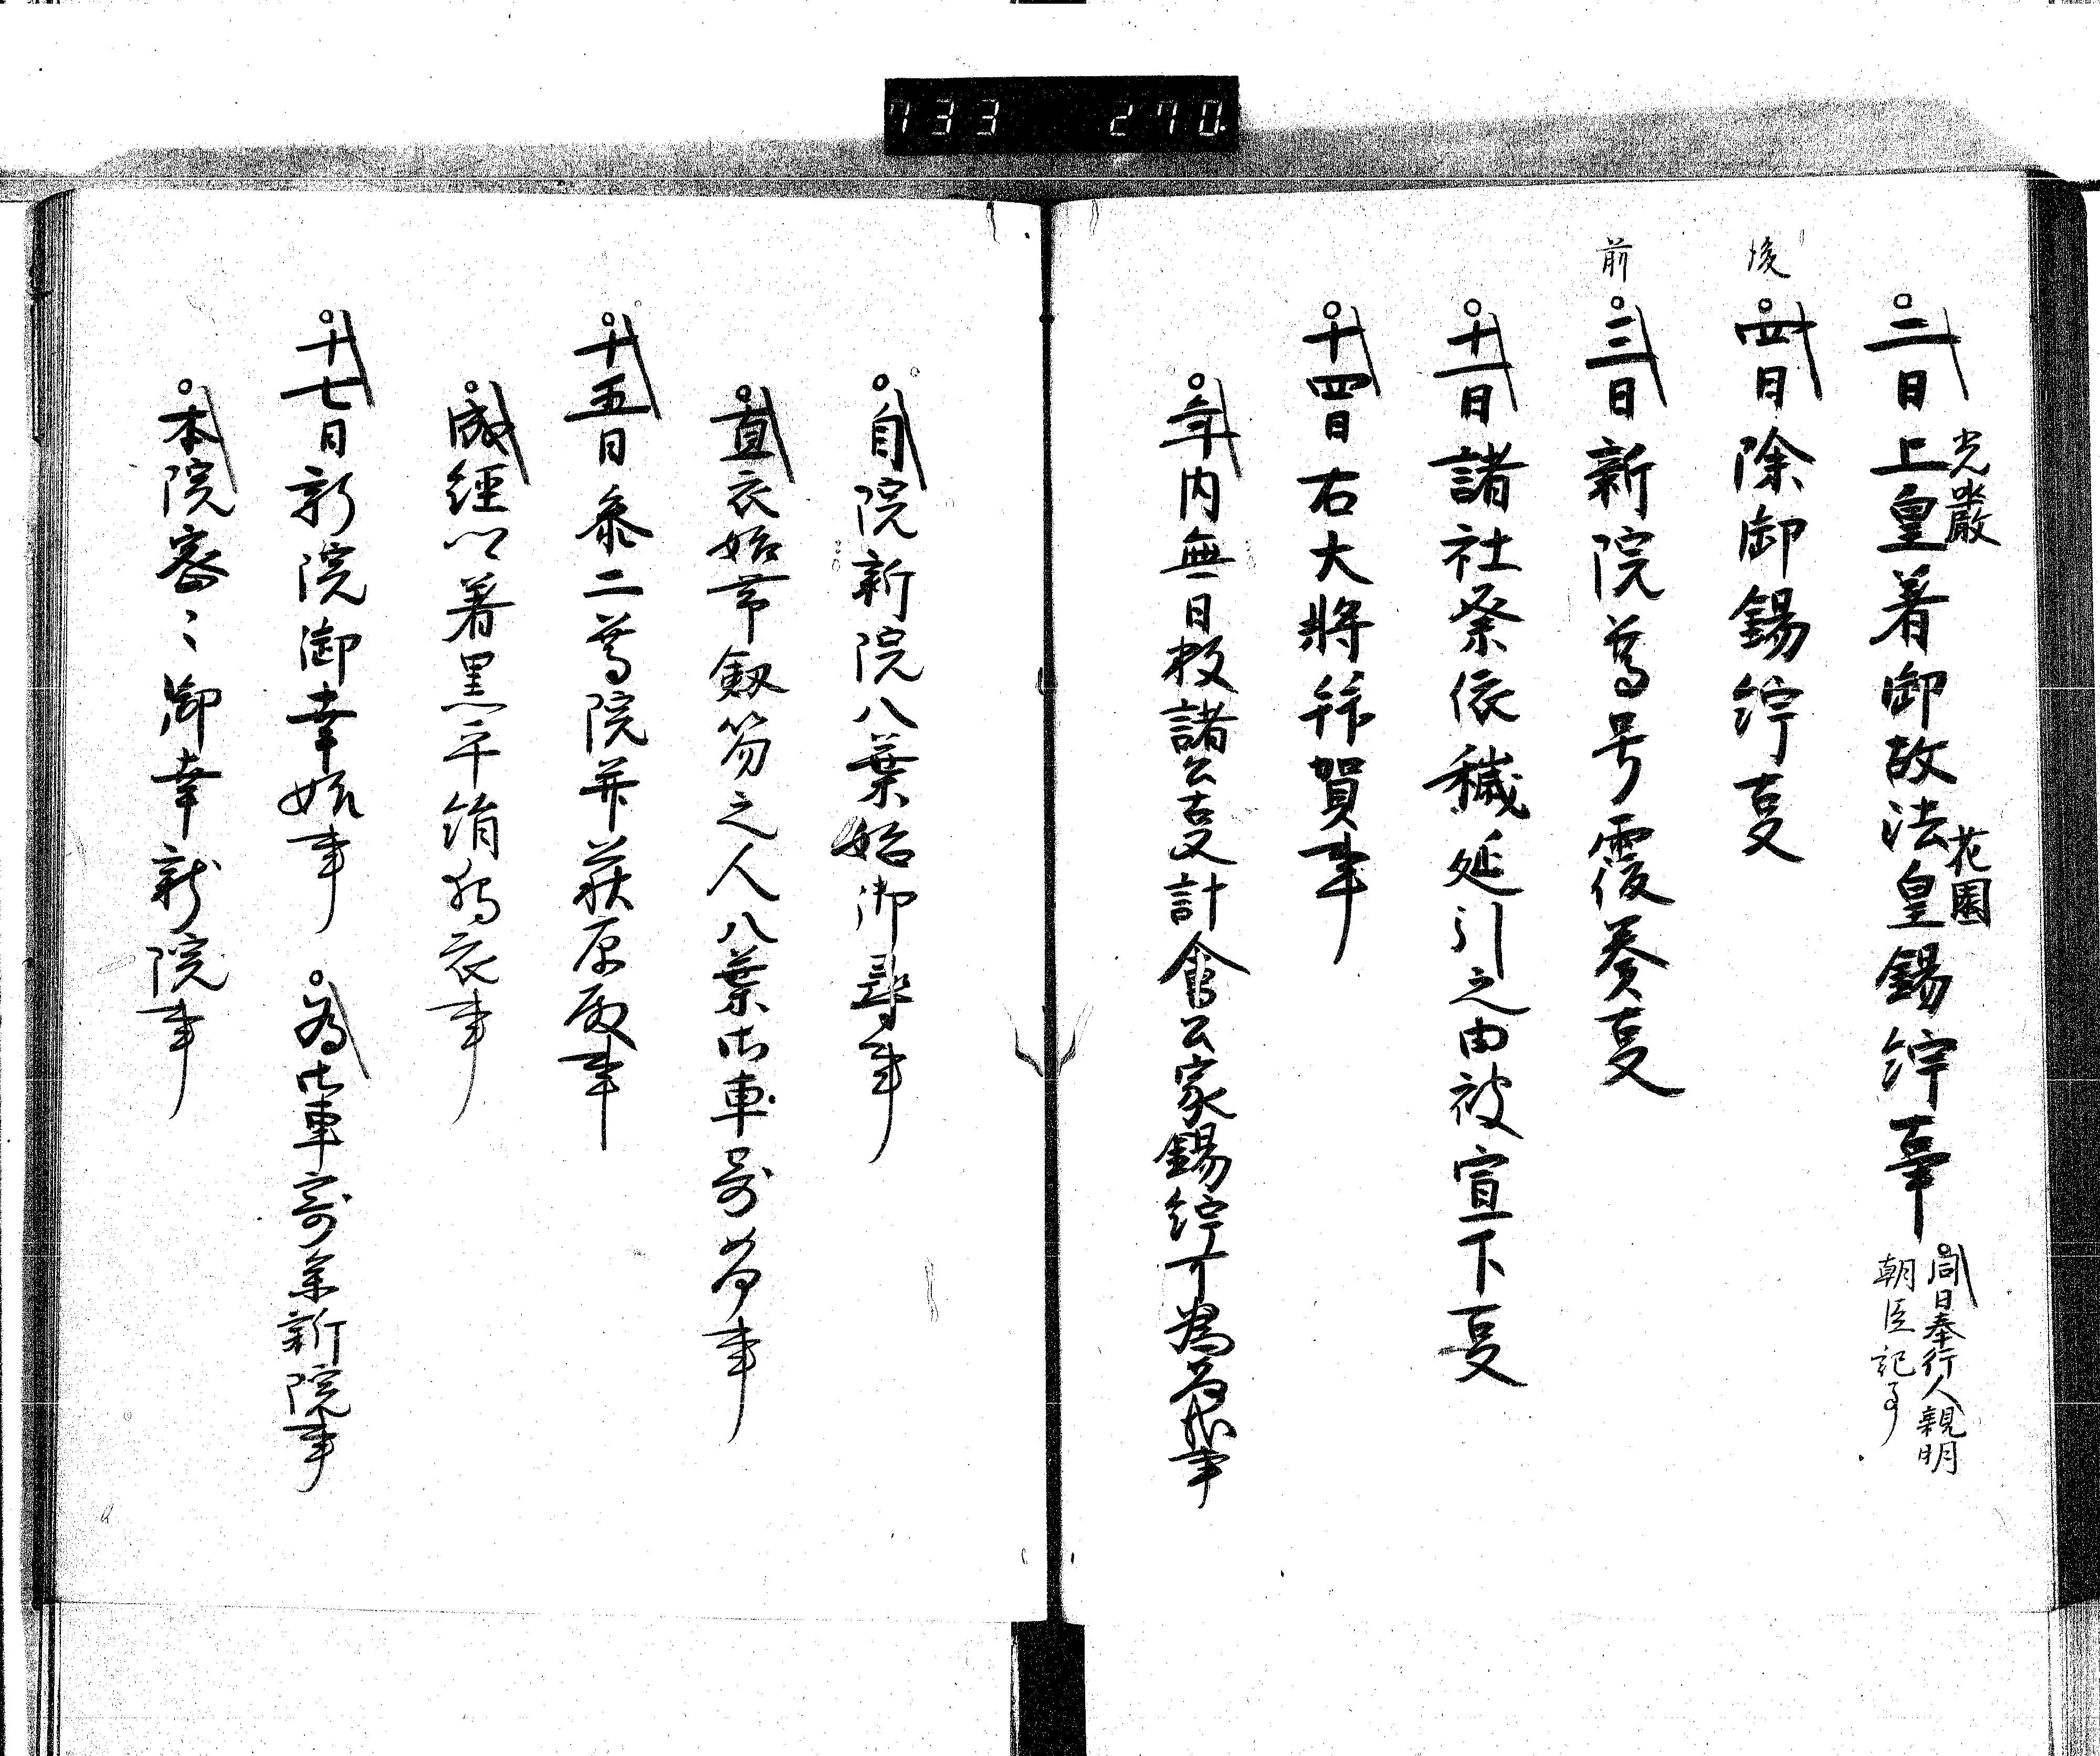 733 270.
光嚴 花園
二日上皇着御故法皇錫紵事 同日奉行人親明
朝臣記事
後
四日除御錫紵事
前
三日新院尊号覆奏事
十一日諸社祭依穢延引之由被宣下事
十四日右大將拜賀事
年内無日数諸公事計會公家錫紵可爲事
自院新院八葉始御尋事
直衣始帶劔笏之人八葉車事
十五日参二尊院并萩原殿事
成經着黒平絹狩衣事
十七日新院御幸始事 為御車寄参新院事
本院密々御幸新院事